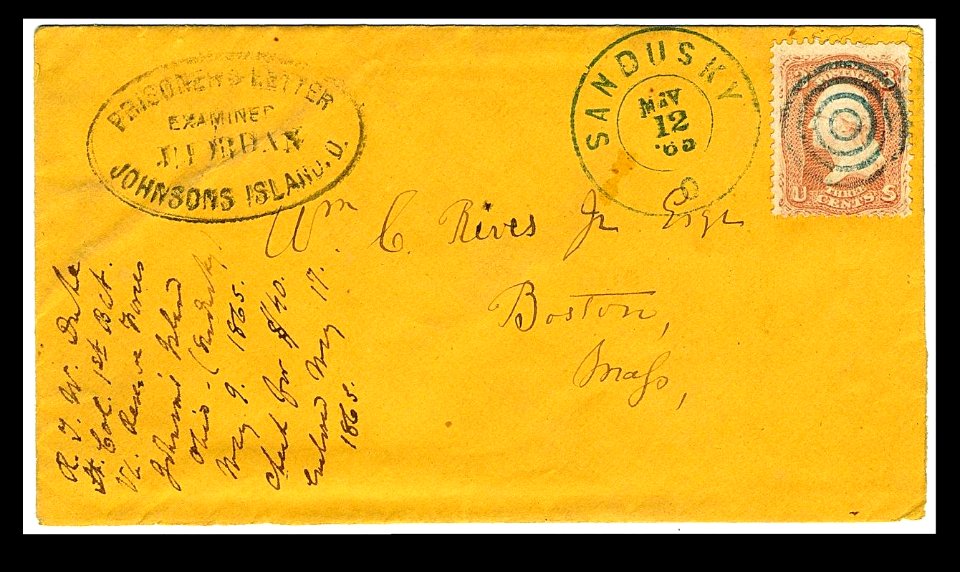 PRISONER'S LETTER
EXAMINED
JOHNSONS ISLAND, O.
SANDUSKY
MAY
12
'65
O
U S
CENTS
Wm C. Rives Jr Esqr
Boston,
Mass,
R. T. W. Duke
Lt. Col. 1st Bat.
Va. Reserve Forces
Johnsons Island
Ohio - (Sandusky
May 9. 1865.
Check for $40.
Enclosed May 17.
1865.